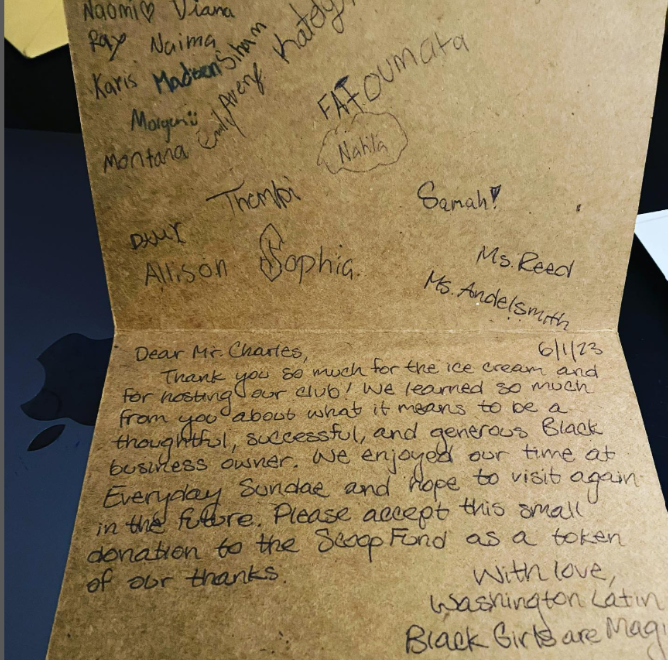 Naomi♡ Viana
Ray Naima
Karis Madison Siham Kate
Morgan Emily Avery
Montana
FATOUMATA
Nahla
Thembi
Samah!
Allison Sophia
Ms. Reed
Ms. Andelsmith
Dear Mr. Charles, 6/1/23
Thank you so much for the ice cream and
for hosting our club! We learned so much
from you about what it means to be a
thoughtful, successful, and generous Black
business owner. We enjoyed our time at
Everyday Sundae and hope to visit again
in the future. Please accept this small
donation to the Scoop Fund as a token
of our thanks.
With love,
Washington Latin
Black Girls are Magi